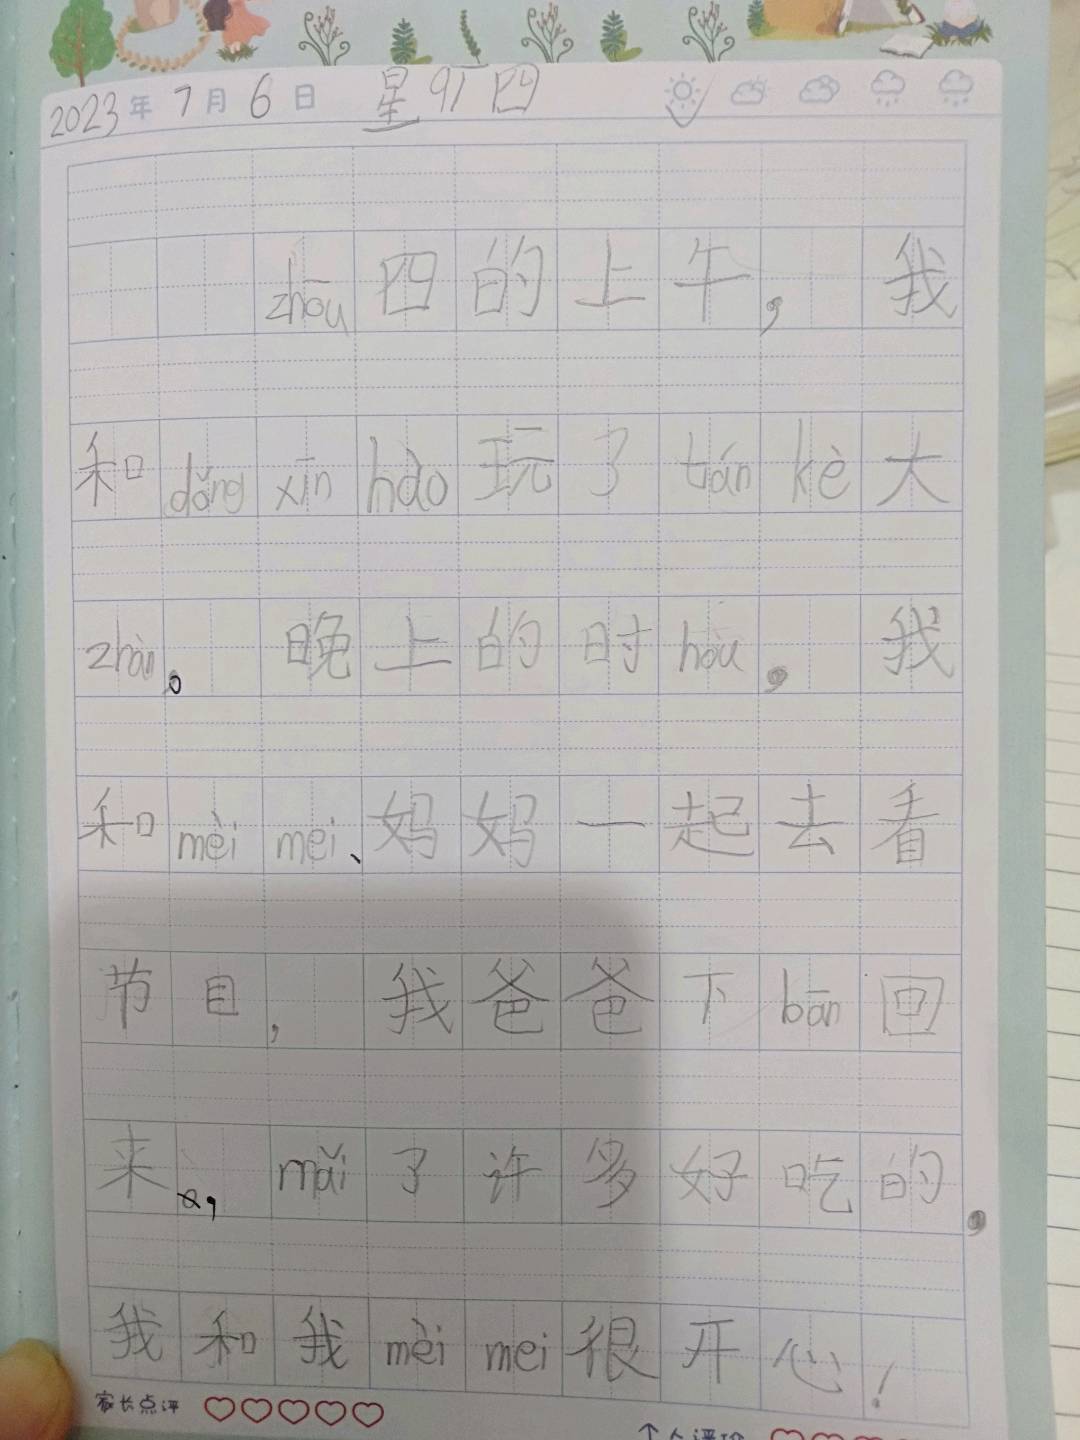 2023年7月6日 星qīㄏ四
zhōu四的上午，我
和dǎng xīn hào玩了tán kè大
zhàn。晚上的时hòu，我
和mèi mei、妈妈一起去看
节目，我爸爸下bān回
来，mǎi了许多好吃的，
我和我mèi mei很开心！
家长点评
个人评价